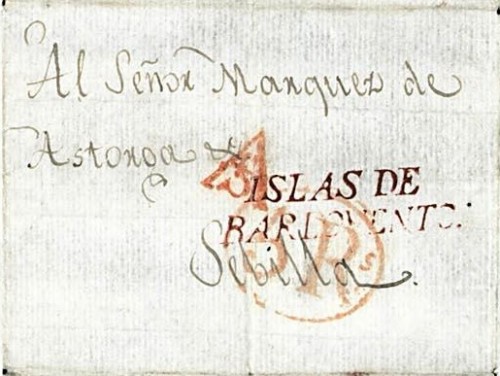 Al Señor Marquez de
Astorga &
ISLAS DE
BARLOVENTO.
Sebilla.
R S